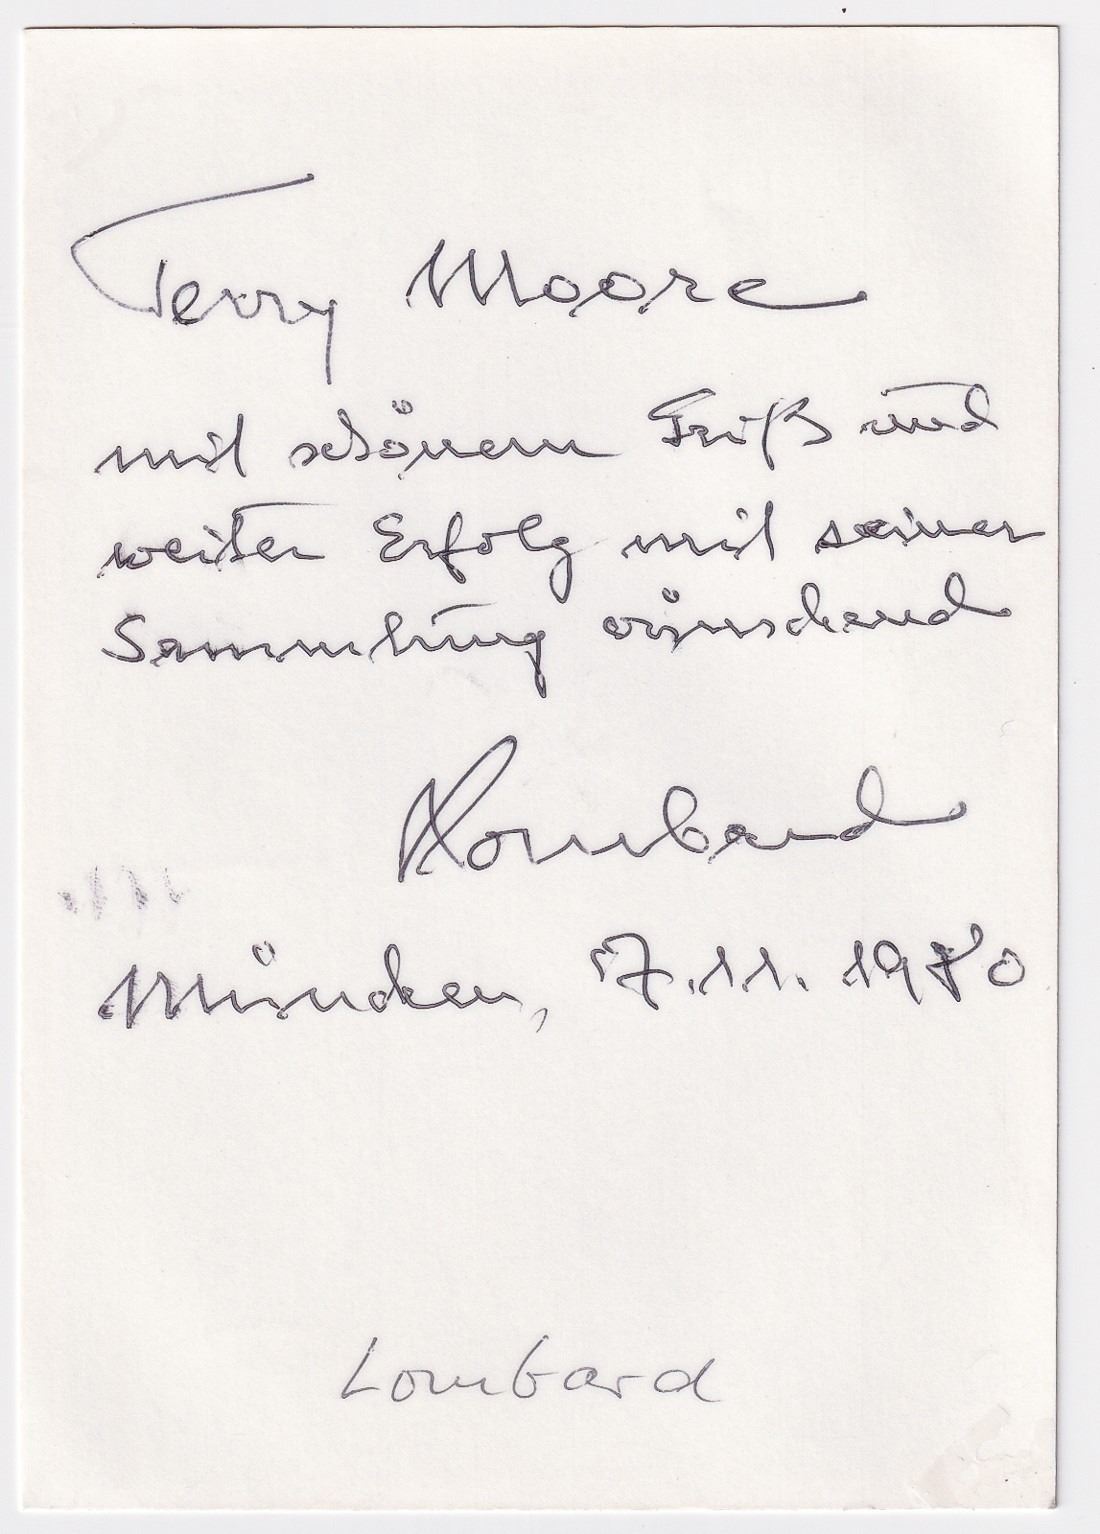 Terry Moore
mit schönem Gruß und
weiter Erfolg mit seiner
Sammlung wünschend
Lombard
München, 7.11.1980
Lombard